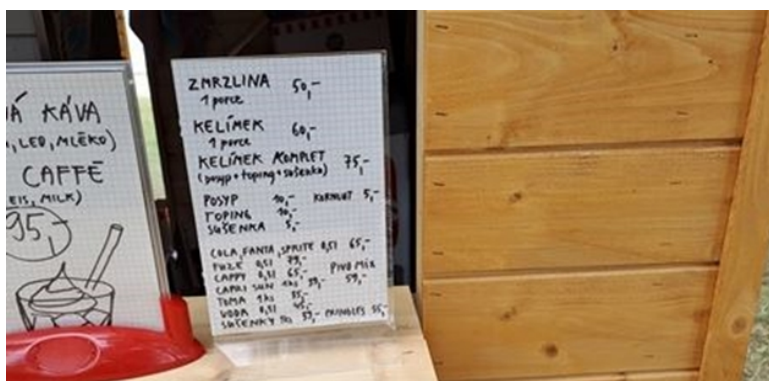 Á KÁVA
, LED, MLÉKO)
CAFFÉ
EIS, MILK)
95,-
ZMRZLINA 50,-
1 porce
KELÍMEK 60,-
1 porce
KELÍMEK KOMPLET 75,-
(posyp + toping + sušenka)
POSYP 10,- KORNOUT 5,-
TOPING 10,-
SUŠENKA 5,-
COLA, FANTA, SPRITE 0,5l 65,-
FUZE 0,5l 79,-
CAPPY 0,3l 65,- PIVO MIX
CAPRI SUN 1ks 39,- 59,-
TOMA 1ks 35,-
VODA 0,5l 45,-
SUŠENKY 1ks 55,- PRINGLES 55,-